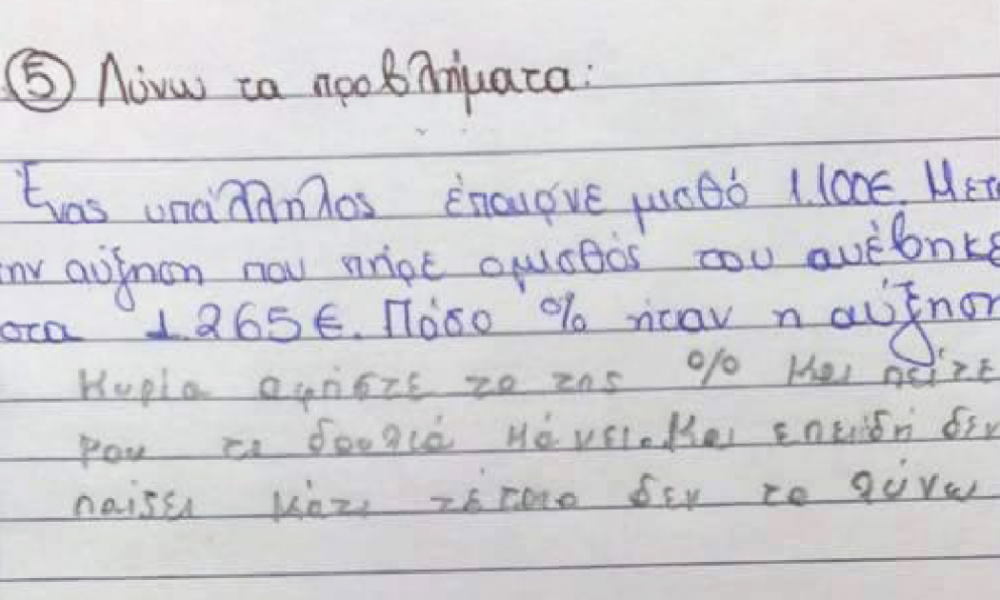 ⑤ Λύνω τα προβλήματα:
Ένας υπάλληλος έπαιρνε μισθό 1.100€. Μετ
ην αύξηση που πήρε ο μισθός του ανέβηκε
στα 1.265€. Πόσο % ήταν η αύξηση
Κυρία αφήστε το της % και πείτε
μου τι δουλιά κάνει. Και επειδή δεν
παίζει κάτι τέτοιο δεν το λύνω